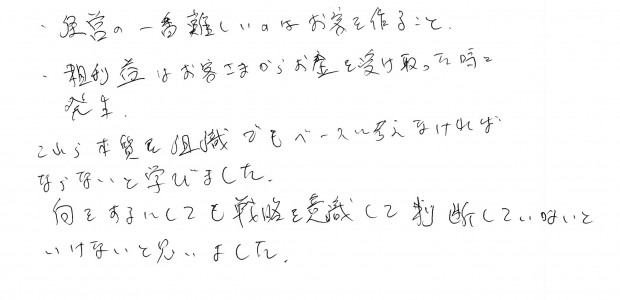 ・経営の一番難しいのはお客を作ること.
・粗利益はお客さまからお金を受け取った時に
発生.
これら本質を組織でもベースに考えなければ
ならないと学びました.
何をするにしても戦略を意識して判断していないと
いけないと思いました.